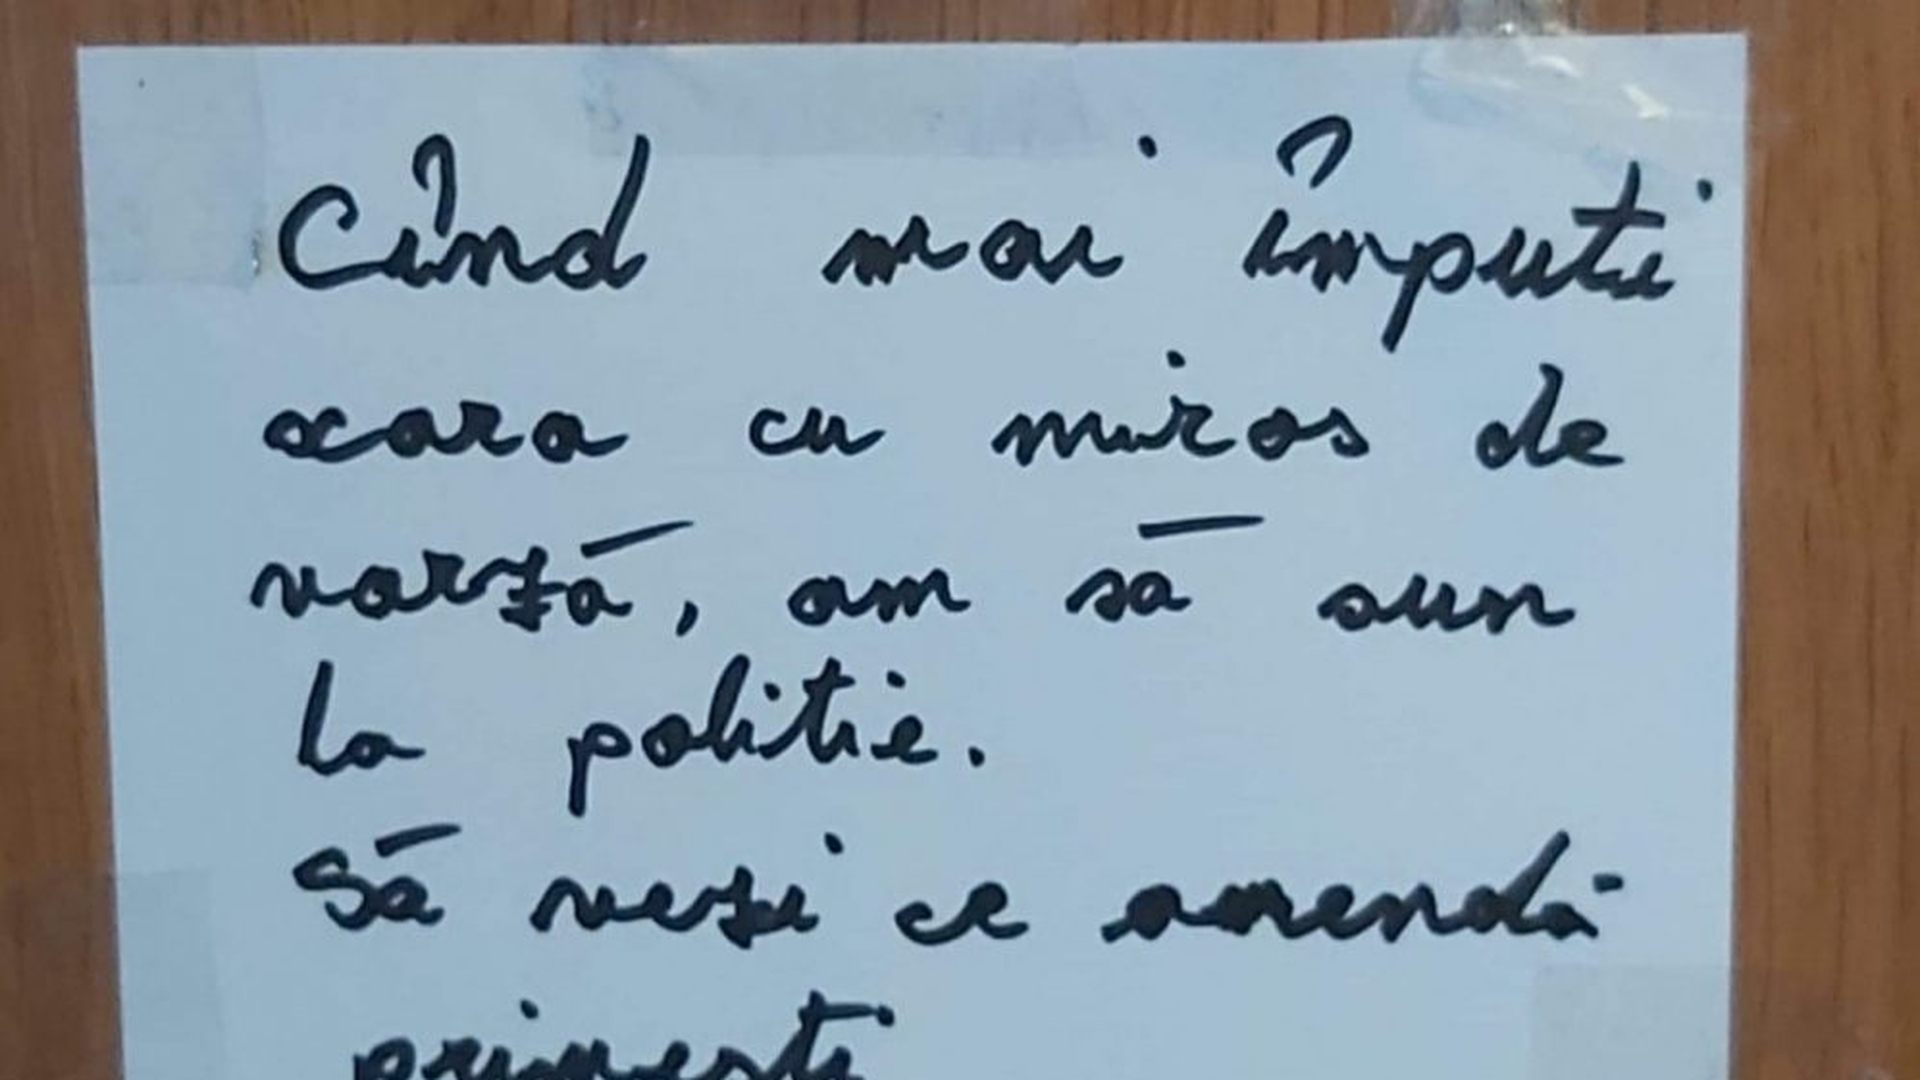 Cînd mai împuti
scara cu miros de
varză, am să sun
la politie.
Să vezi ce amendă
primesti